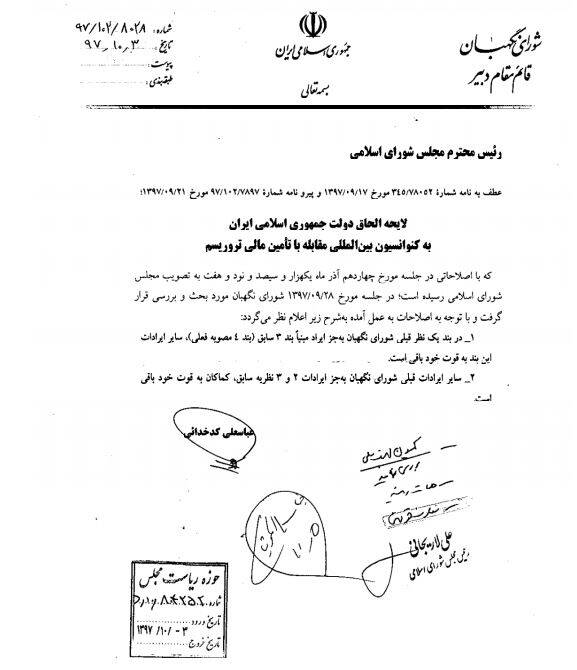 شورای نگهبان
قائم مقام دبیر
جمهوری اسلامی ایران
بسمه تعالی
شماره: ۹۷/۱۰۲/۸۰۲۸
تاریخ: ۹۷٫۱۰٫۳
پیوست:
طبقه‌بندی:
رئیس محترم مجلس شورای اسلامی
عطف به نامه شمارهٔ ۳٤٥/۷۸۰٥۲ مورخ ۱۳۹۷/۰۹/۱۷ و پیرو نامه شمارهٔ ۹۷/۱۰۲/۷۸۹۷ مورخ ۱۳۹۷/۰۹/۲۱؛
لایحه الحاق دولت جمهوری اسلامی ایران
به کنوانسیون بین‌المللی مقابله با تأمین مالی تروریسم
که با اصلاحاتی در جلسه مورخ چهاردهم آذر ماه یکهزار و سیصد و نود و هفت به تصویب مجلس
شورای اسلامی رسیده است؛ در جلسه مورخ ۱۳۹۷/۰۹/۲۸ شورای نگهبان مورد بحث و بررسی قرار
گرفت و با توجه به اصلاحات به عمل آمده به‌شرح زیر اعلام نظر می‌گردد:
۱_ در بند یک نظر قبلی شورای نگهبان به‌جز ایراد مبنیاً بند ۳ سابق (بند ٤ مصوبه فعلی)، سایر ایرادات
این بند به قوت خود باقی است.
۲_ سایر ایرادات قبلی شورای نگهبان به‌جز ایرادات ۲ و ۳ نظریه سابق، کماکان به قوت خود باقی
است.
عباسعلی کدخدائی
علی لاریجانی
رئیس مجلس شورای اسلامی
حوزه ریاست مجلس
شماره:
تاریخ ورود: ۱۳۹۷/۱۰/۰۳
تاریخ خروج: